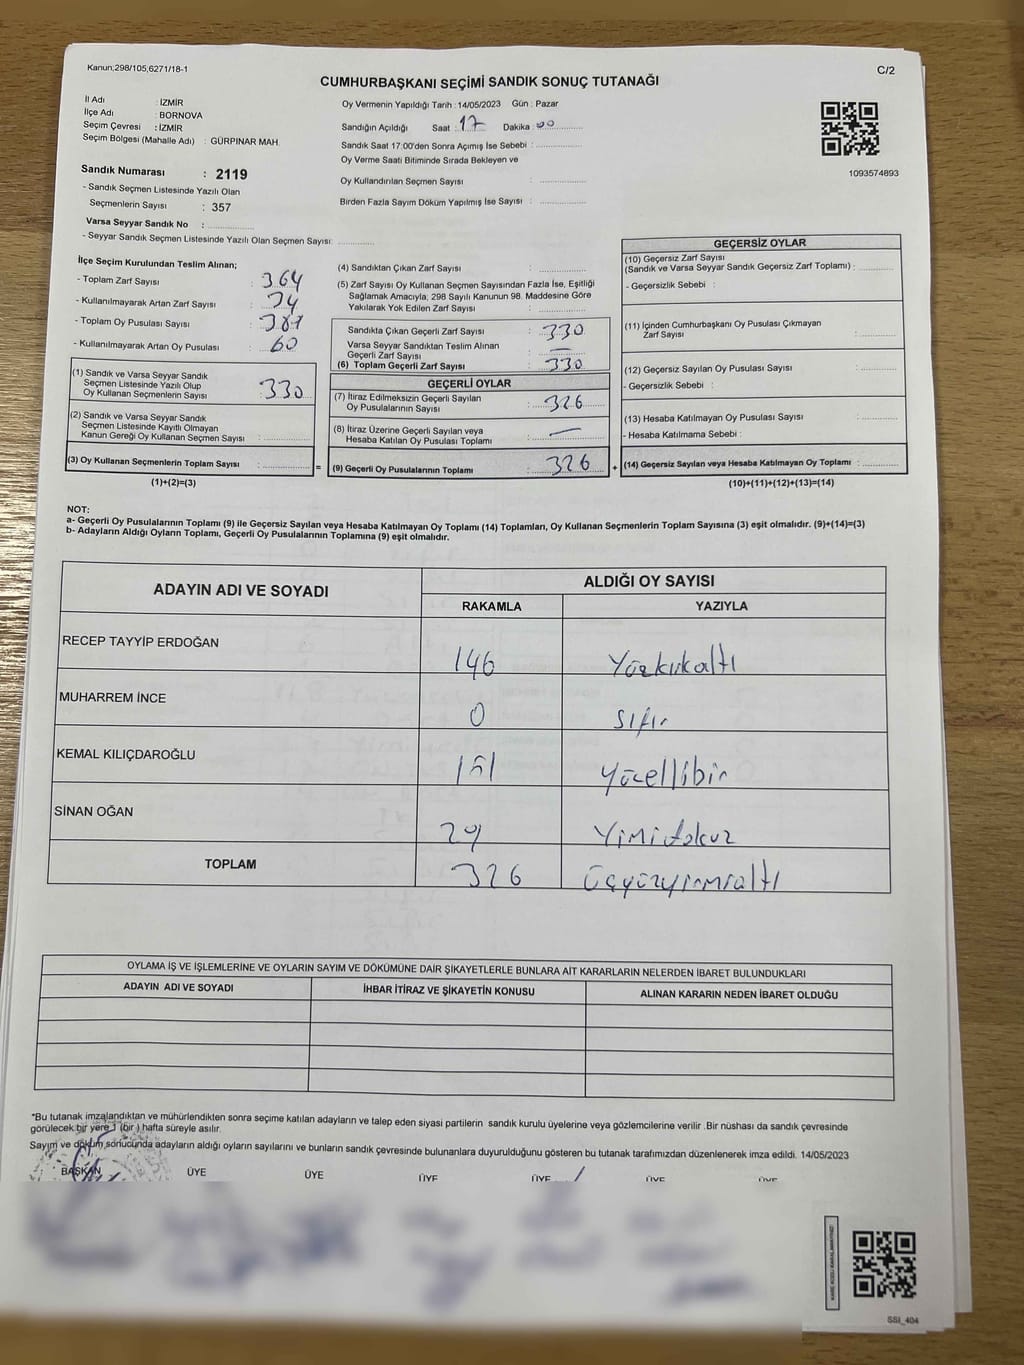 Kanun;298/105,6271/18-1
C/2
CUMHURBAŞKANI SEÇİMİ SANDIK SONUÇ TUTANAĞI
İl Adı : İZMİR
İlçe Adı : BORNOVA
Seçim Çevresi : İZMİR
Seçim Bölgesi (Mahalle Adı) : GÜRPINAR MAH.
Sandık Numarası : 2119
- Sandık Seçmen Listesinde Yazılı Olan
Seçmenlerin Sayısı : 357
Varsa Seyyar Sandık No :
- Seyyar Sandık Seçmen Listesinde Yazılı Olan Seçmen Sayısı:
Oy Vermenin Yapıldığı Tarih :14/05/2023 Gün : Pazar
Sandığın Açıldığı Saat : 17 Dakika : 00
Sandık Saat 17:00'den Sonra Açımış İse Sebebi :
Oy Verme Saati Bitiminde Sırada Bekleyen ve
Oy Kullandırılan Seçmen Sayısı :
Birden Fazla Sayım Döküm Yapılmış İse Sayısı :
1093574893
İlçe Seçim Kurulundan Teslim Alınan;
- Toplam Zarf Sayısı : 364
- Kullanılmayarak Artan Zarf Sayısı : 34
- Toplam Oy Pusulası Sayısı :
- Kullanılmayarak Artan Oy Pusulası : 60
(1) Sandık ve Varsa Seyyar Sandık
Seçmen Listesinde Yazılı Olup
Oy Kullanan Seçmenlerin Sayısı : 330
(2) Sandık ve Varsa Seyyar Sandık
Seçmen Listesinde Kayıtlı Olmayan
Kanun Gereği Oy Kullanan Seçmen Sayısı :
(3) Oy Kullanan Seçmenlerin Toplam Sayısı :
(1)+(2)=(3)
=
(4) Sandıktan Çıkan Zarf Sayısı :
(5) Zarf Sayısı Oy Kullanan Seçmen Sayısından Fazla İse, Eşitliği
Sağlamak Amacıyla; 298 Sayılı Kanunun 98. Maddesine Göre
Yakılarak Yok Edilen Zarf Sayısı :
Sandıkta Çıkan Geçerli Zarf Sayısı : 330
Varsa Seyyar Sandıktan Teslim Alınan
Geçerli Zarf Sayısı : —
(6) Toplam Geçerli Zarf Sayısı : 330
GEÇERLİ OYLAR
(7) İtiraz Edilmeksizin Geçerli Sayılan
Oy Pusulalarının Sayısı : 326
(8) İtiraz Üzerine Geçerli Sayılan veya
Hesaba Katılan Oy Pusulası Toplamı : —
(9) Geçerli Oy Pusulalarının Toplamı : 326
+
GEÇERSİZ OYLAR
(10) Geçersiz Zarf Sayısı
(Sandık ve Varsa Seyyar Sandık Geçersiz Zarf Toplamı) :
- Geçersizlik Sebebi :
(11) İçinden Cumhurbaşkanı Oy Pusulası Çıkmayan
Zarf Sayısı :
(12) Geçersiz Sayılan Oy Pusulası Sayısı :
- Geçersizlik Sebebi :
(13) Hesaba Katılmayan Oy Pusulası Sayısı :
- Hesaba Katılmama Sebebi :
(14) Geçersiz Sayılan veya Hesaba Katılmayan Oy Toplamı :
(10)+(11)+(12)+(13)=(14)
NOT:
a- Geçerli Oy Pusulalarının Toplamı (9) ile Geçersiz Sayılan veya Hesaba Katılmayan Oy Toplamı (14) Toplamları, Oy Kullanan Seçmenlerin Toplam Sayısına (3) eşit olmalıdır. (9)+(14)=(3)
b- Adayların Aldığı Oyların Toplamı, Geçerli Oy Pusulalarının Toplamına (9) eşit olmalıdır.
ADAYIN ADI VE SOYADI
ALDIĞI OY SAYISI
RAKAMLA YAZIYLA
RECEP TAYYİP ERDOĞAN 146 Yüzkırkaltı
MUHARREM İNCE 0 sıfır
KEMAL KILIÇDAROĞLU 151 Yüzellibir
SİNAN OĞAN 29 Yirmidokuz
TOPLAM 326 Üçyüzyirmialtı
OYLAMA İŞ VE İŞLEMLERİNE VE OYLARIN SAYIM VE DÖKÜMÜNE DAİR ŞİKAYETLERLE BUNLARA AİT KARARLARIN NELERDEN İBARET BULUNDUKLARI
ADAYIN ADI VE SOYADI İHBAR İTİRAZ VE ŞİKAYETİN KONUSU ALINAN KARARIN NEDEN İBARET OLDUĞU
*Bu tutanak imzalandıktan ve mühürlendikten sonra seçime katılan adayların ve talep eden siyasi partilerin sandık kurulu üyelerine veya gözlemcilerine verilir .Bir nüshası da sandık çevresinde
görülecek bir yere 1 (bir) hafta süreyle asılır.
Sayım ve döküm sonucunda adayların aldığı oyların sayılarını ve bunların sandık çevresinde bulunanlara duyurulduğunu gösteren bu tutanak tarafımızdan düzenlenerek imza edildi. 14/05/2023
BAŞKAN ÜYE ÜYE ÜYE ÜYE ÜYE ÜYE
SSI_404